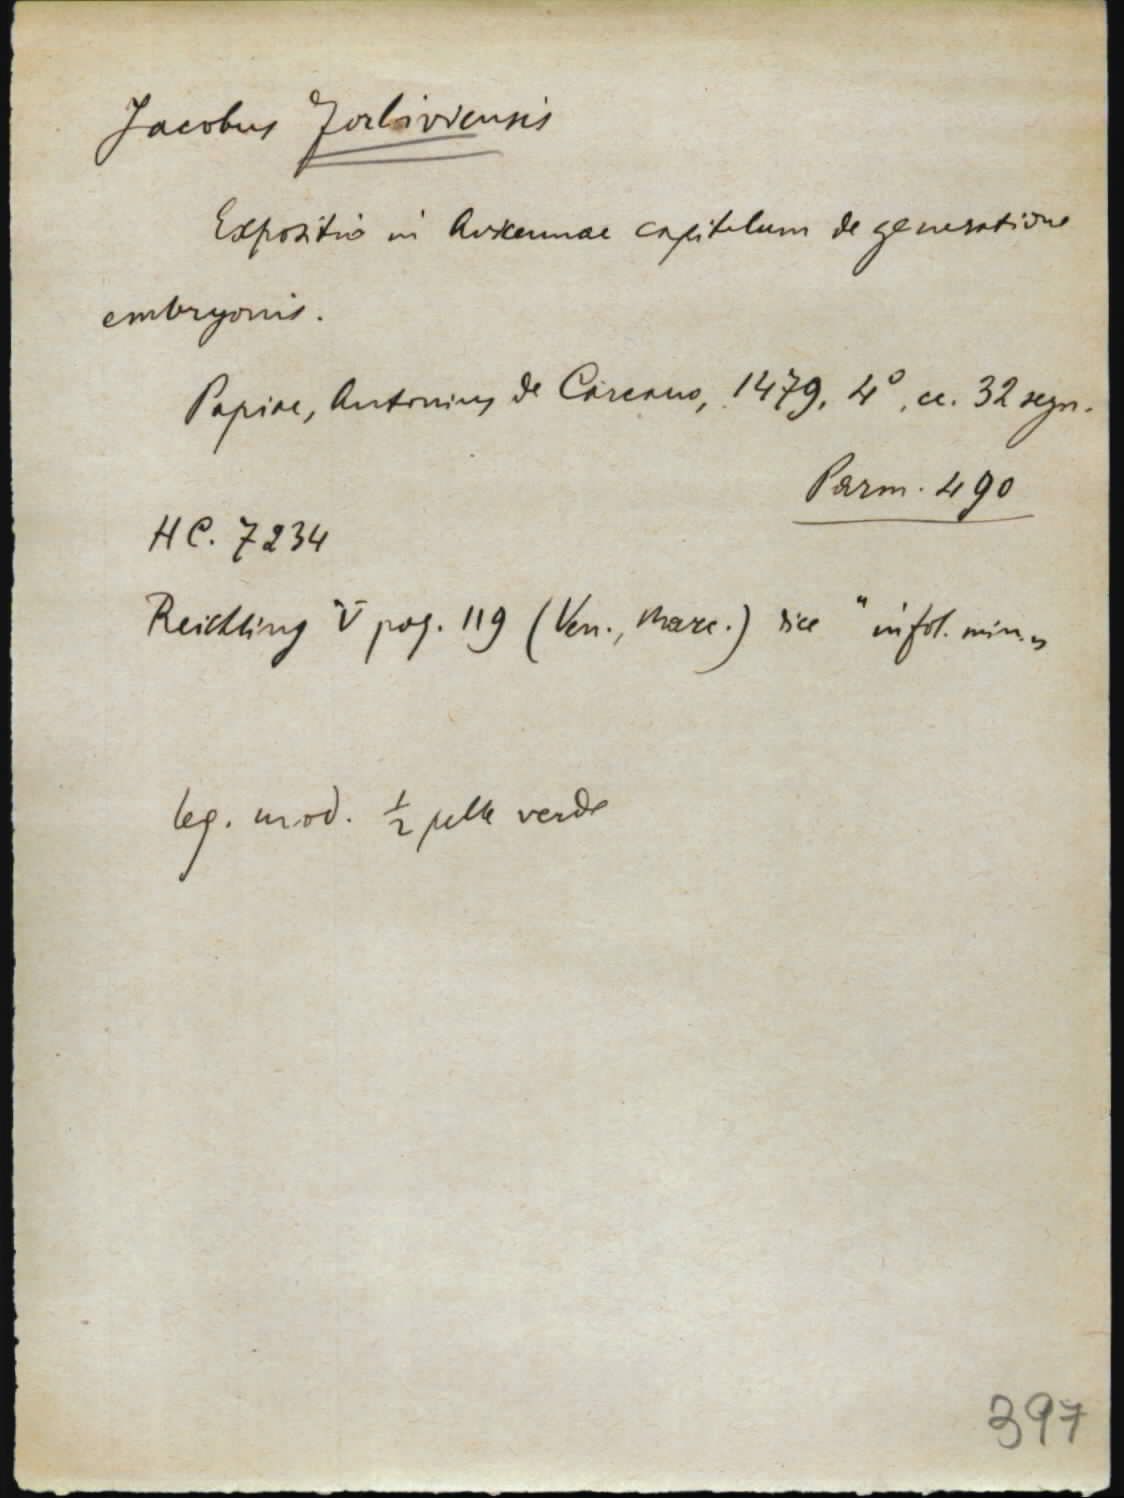 Jacobus Forliviensis
Expositio in Avicennae capitulum de generatione
embryonis.
Papiae, Antonius de Carcano, 1479, 4°, cc. 32 segn.
Parm. 490
HC. 7234
Reichling V pag. 119 (Ven., Marc.) dice "in fol. min."
leg. mod. ½ pelle verde
397